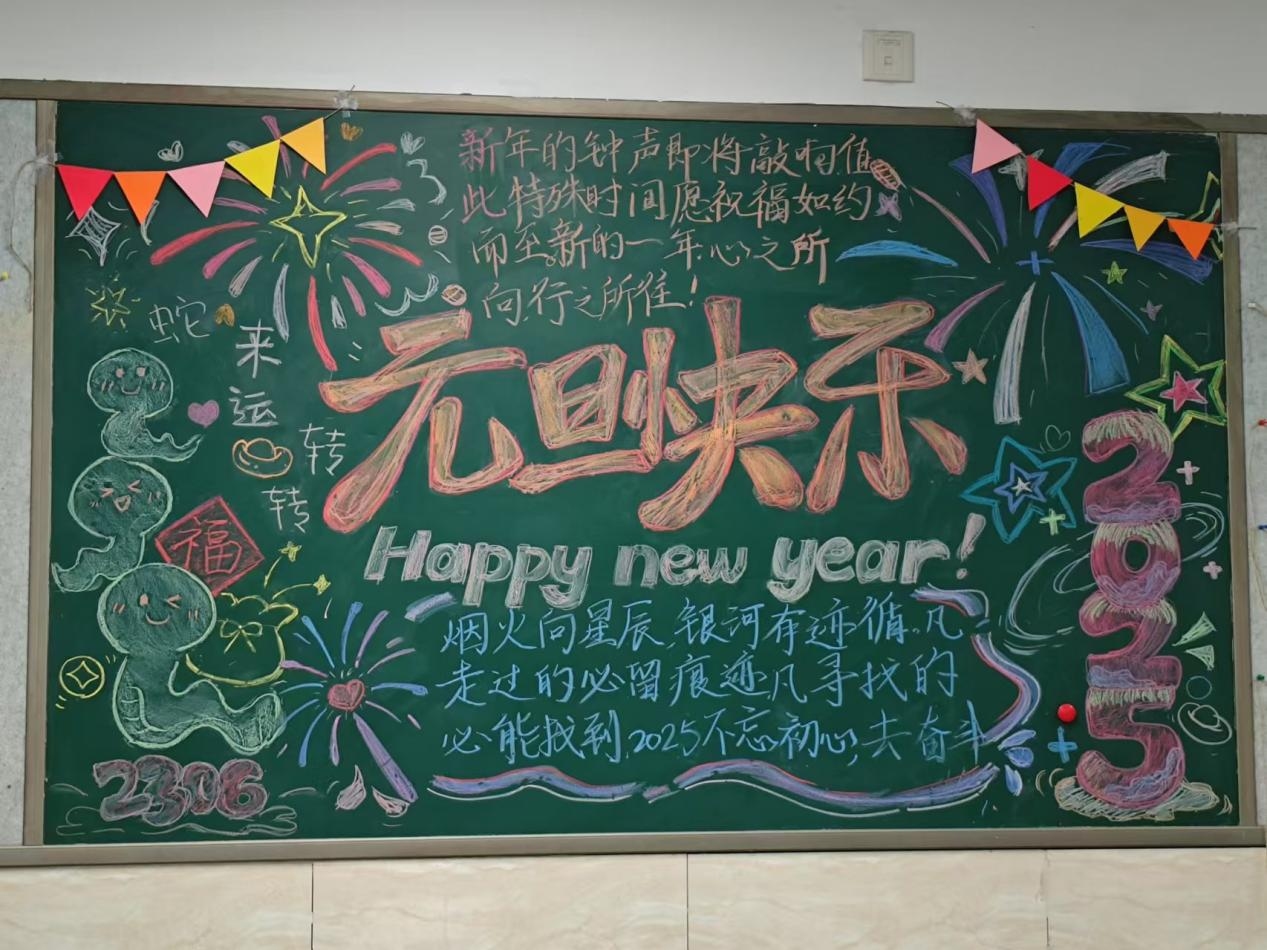 新年的钟声即将敲响值
此特殊时间愿祝福如约
而至新的一年心之所
向行之所往!
蛇
来
运
转
转
元旦快乐
福
Happy new year!
2025
烟火向星辰,银河有迹循。凡
走过的必留痕迹凡寻找的
必能找到2025不忘初心,去奋斗
2306